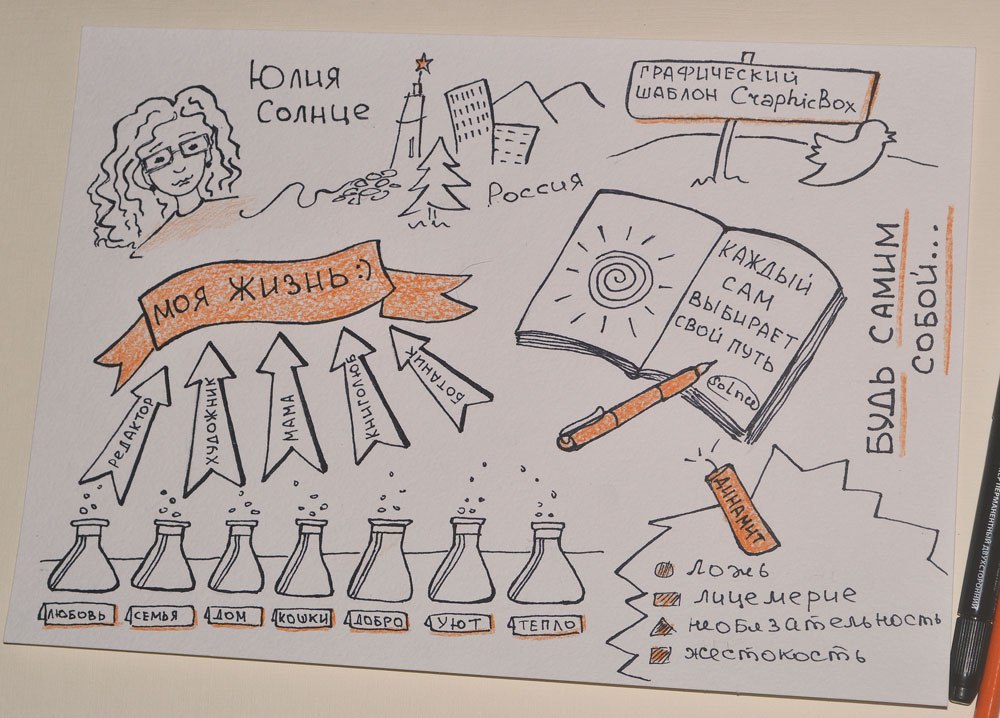 Юлия
Солнце
Россия
ГРАФИЧЕСКИЙ
ШАБЛОН GraphicBox
МОЯ ЖИЗНЬ :)
РЕДАКТОР
ХУДОЖНИК
МАМА
КНИГОЛЮБ
БОТАНИК
КАЖДЫЙ
САМ
ВЫБИРАЕТ
СВОЙ ПУТЬ
Solnce
БУДЬ САМИМ
СОБОЙ...
ЛЮБОВЬ
СЕМЬЯ
ДОМ
КОШКИ
ДОБРО
УЮТ
ТЕПЛО
ДИНАМИТ
ложь
лицемерие
необязательность
жестокость
ПЕРМАНЕНТНЫЙ ДВУХСТОРОННИЙ